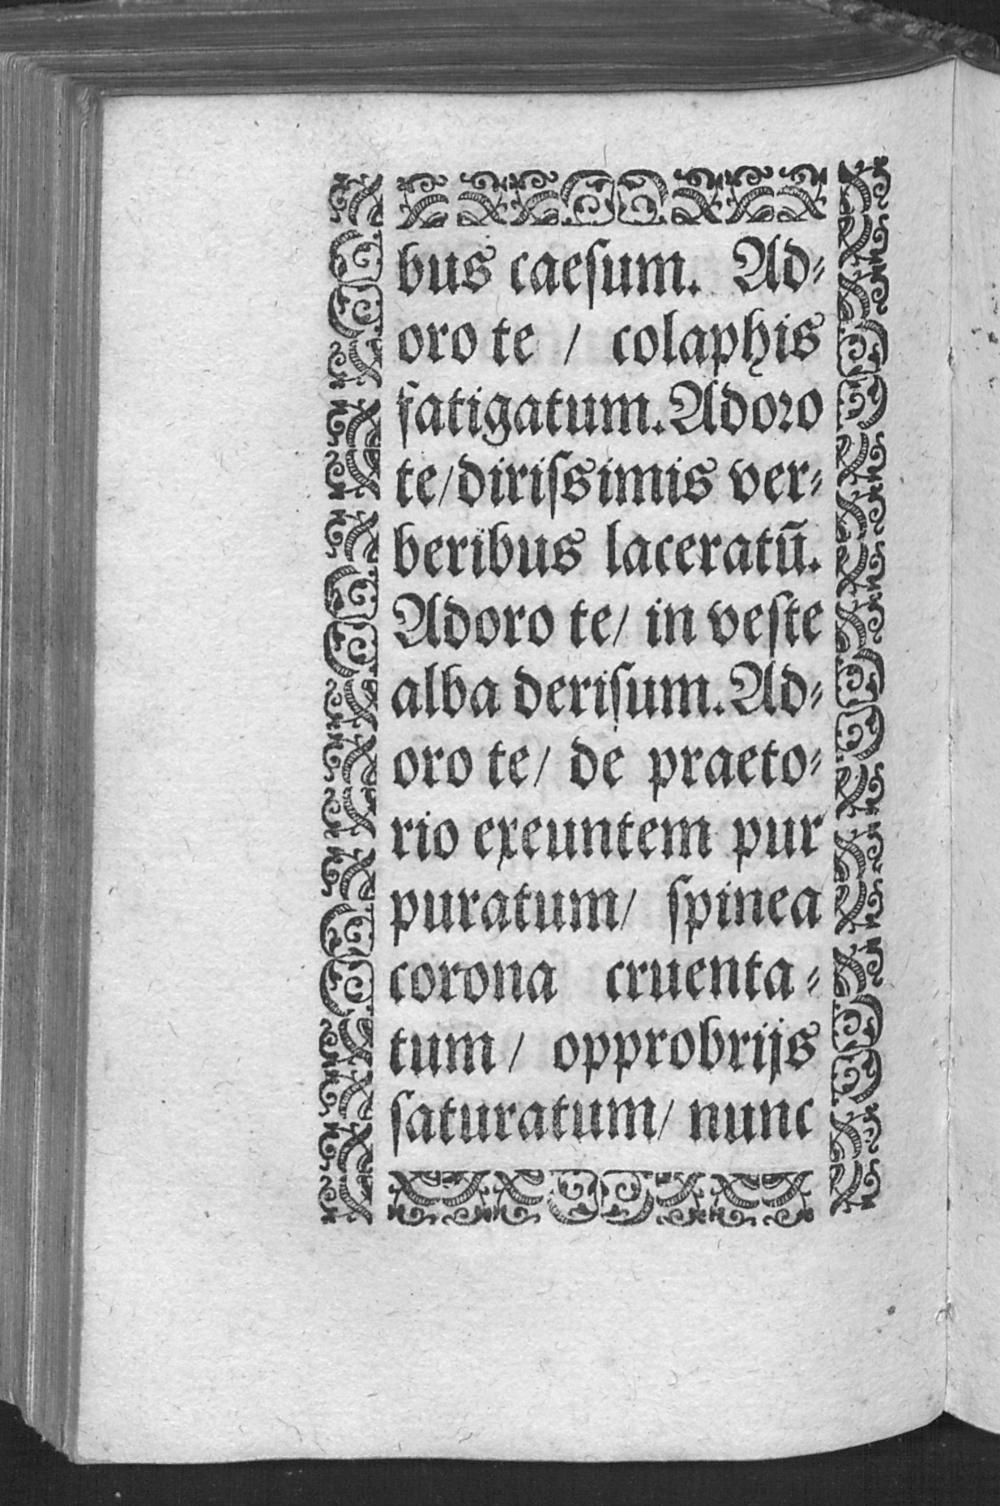 bus caeſum. Ad⸗
oro te / colaphis
fatigatum. Adoꝛo
te/ diriſsimis ver⸗
beribus laceratū.
Adoro te/ in veſte
alba deriſum. Ad⸗
oro te/ de praeto⸗
rio exeuntem pur
puratum/ ſpinea
corona cruenta⸗
tum / opprobrijs
ſaturatum/ nunc